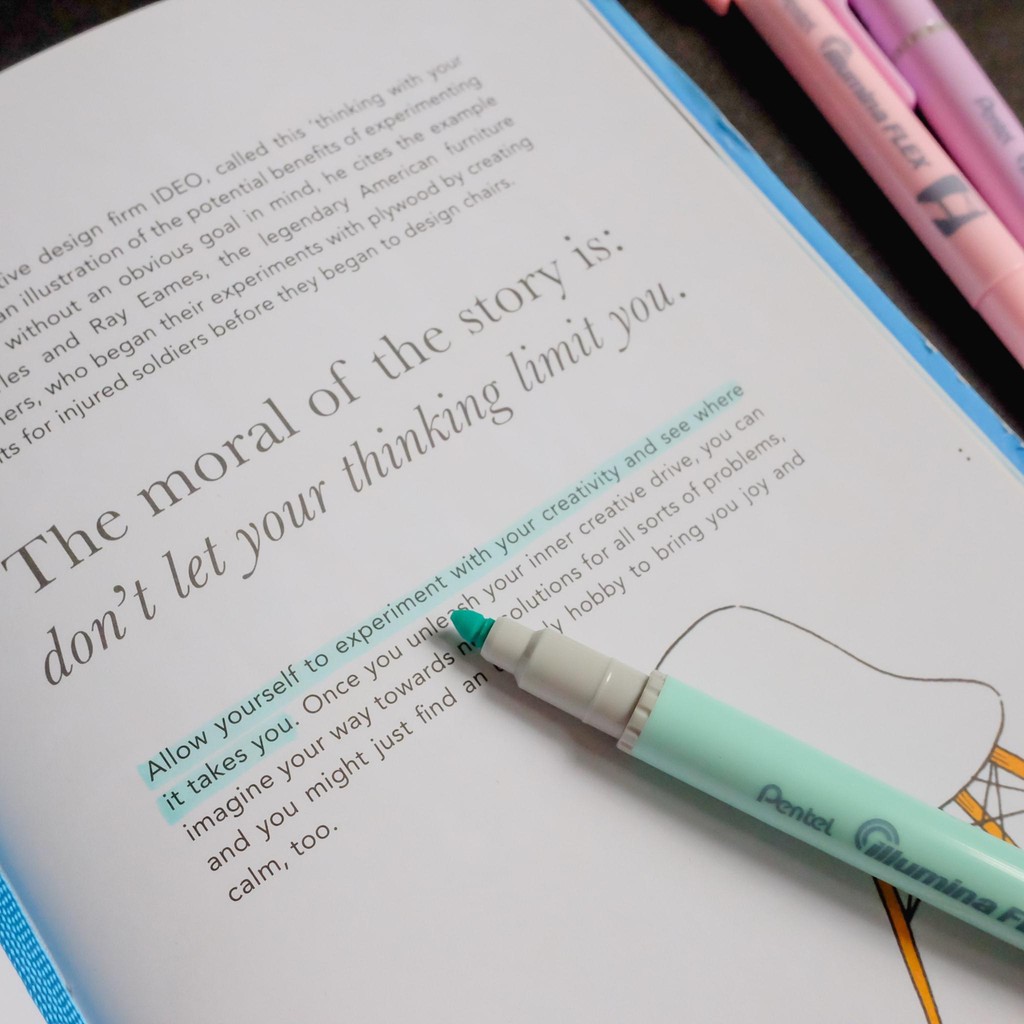 tive design firm IDEO, called this 'thinking with your
an illustration of the potential benefits of experimenting
without an obvious goal in mind, he cites the example
les and Ray Eames, the legendary American furniture
ners, who began their experiments with plywood by creating
ts for injured soldiers before they began to design chairs.
The moral of the story is:
don't let your thinking limit you.
Allow yourself to experiment with your creativity and see where
it takes you. Once you unleash your inner creative drive, you can
imagine your way towards solutions for all sorts of problems,
and you might just find an hobby to bring you joy and
calm, too.
Pentel illumina FL
illumina FLEX
Pentel